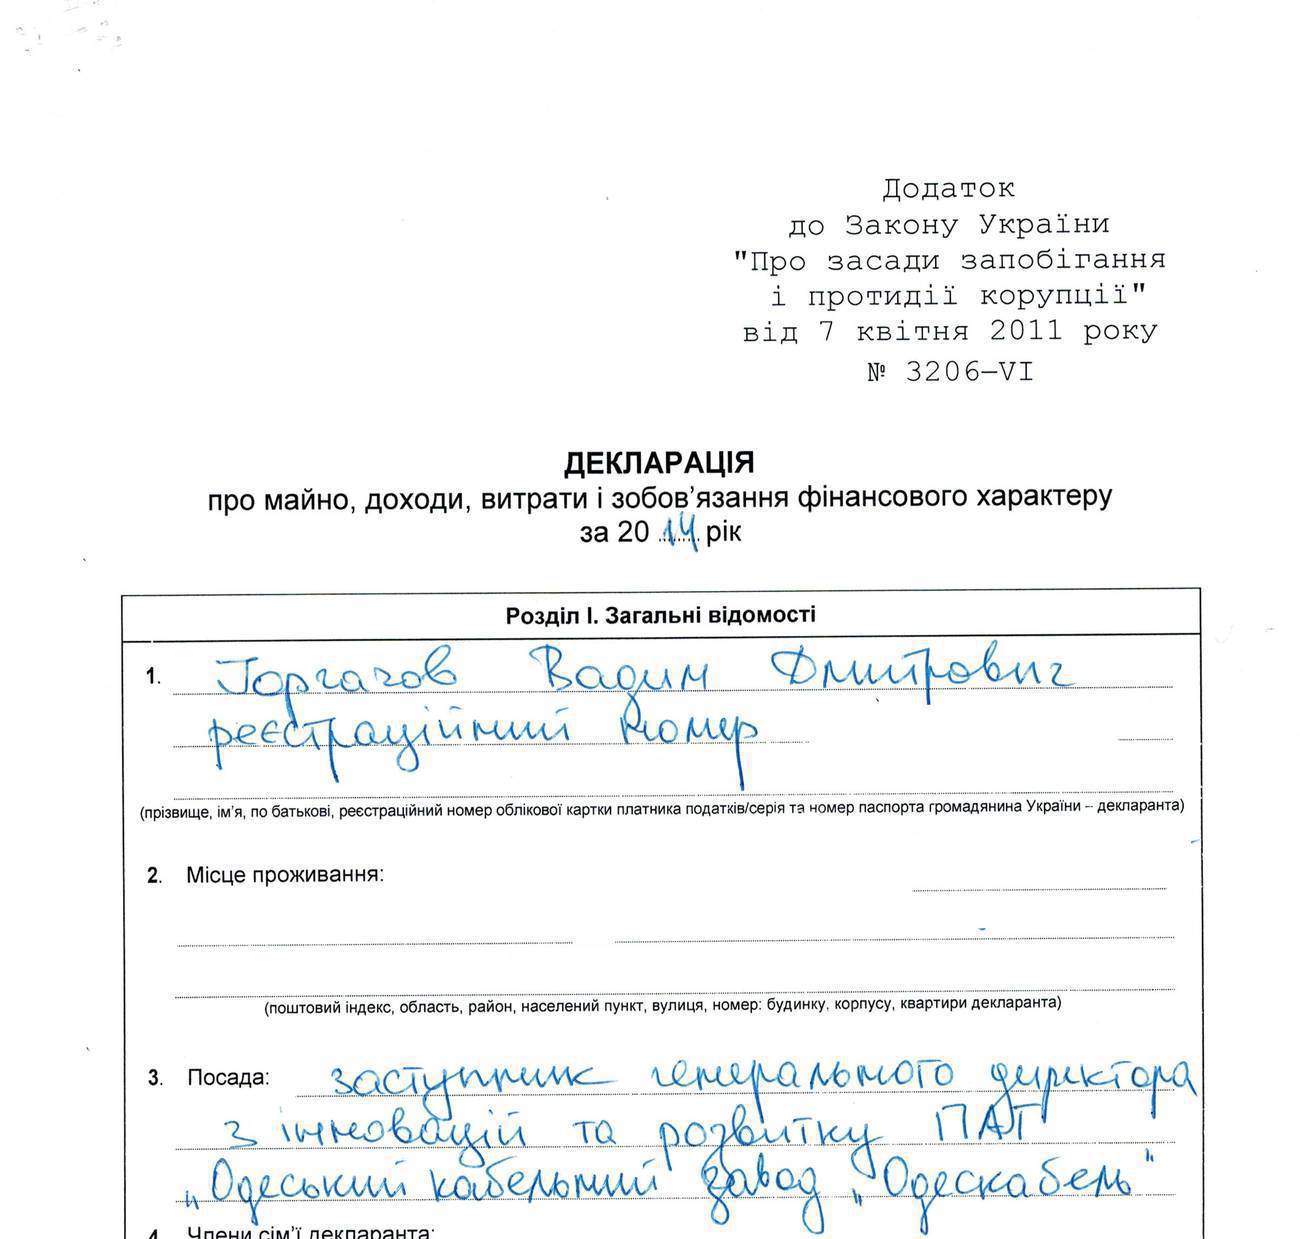 Додаток
до Закону України
"Про засади запобігання
і протидії корупції"
від 7 квітня 2011 року
№ 3206–VI
ДЕКЛАРАЦІЯ
про майно, доходи, витрати і зобов’язання фінансового характеру
за 20 14 рік
Розділ І. Загальні відомості
1. Торгачов Вадим Дмитрович
реєстраційний номер
(прізвище, ім’я, по батькові, реєстраційний номер облікової картки платника податків/серія та номер паспорта громадянина України – декларанта)
2. Місце проживання:
(поштовий індекс, область, район, населений пункт, вулиця, номер: будинку, корпусу, квартири декларанта)
3. Посада: заступник генерального директора
з інновацій та розвитку ПАТ
„Одеський кабельний завод „Одескабель"
4. Члени сім’ї декларанта: